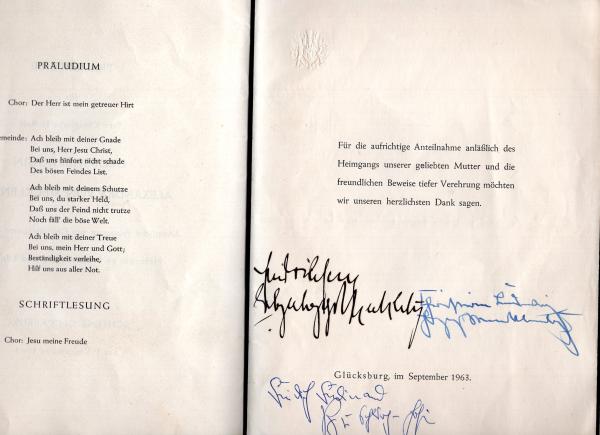 PRÄLUDIUM
Chor: Der Herr ist mein getreuer Hirt
emeinde: Ach bleib mit deiner Gnade
Bei uns, Herr Jesu Christ,
Daß uns hinfort nicht schade
Des bösen Feindes List.
Ach bleib mit deinem Schutze
Bei uns, du starker Held,
Daß uns der Feind nicht trutze
Noch fäll' die böse Welt.
Ach bleib mit deiner Treue
Bei uns, mein Herr und Gott;
Beständigkeit verleihe,
Hilf uns aus aller Not.
SCHRIFTLESUNG
Chor: Jesu meine Freude
Für die aufrichtige Anteilnahme anläßlich des
Heimgangs unserer geliebten Mutter und die
freundlichen Beweise tiefer Verehrung möchten
wir unseren herzlichsten Dank sagen.
Glücksburg, im September 1963.